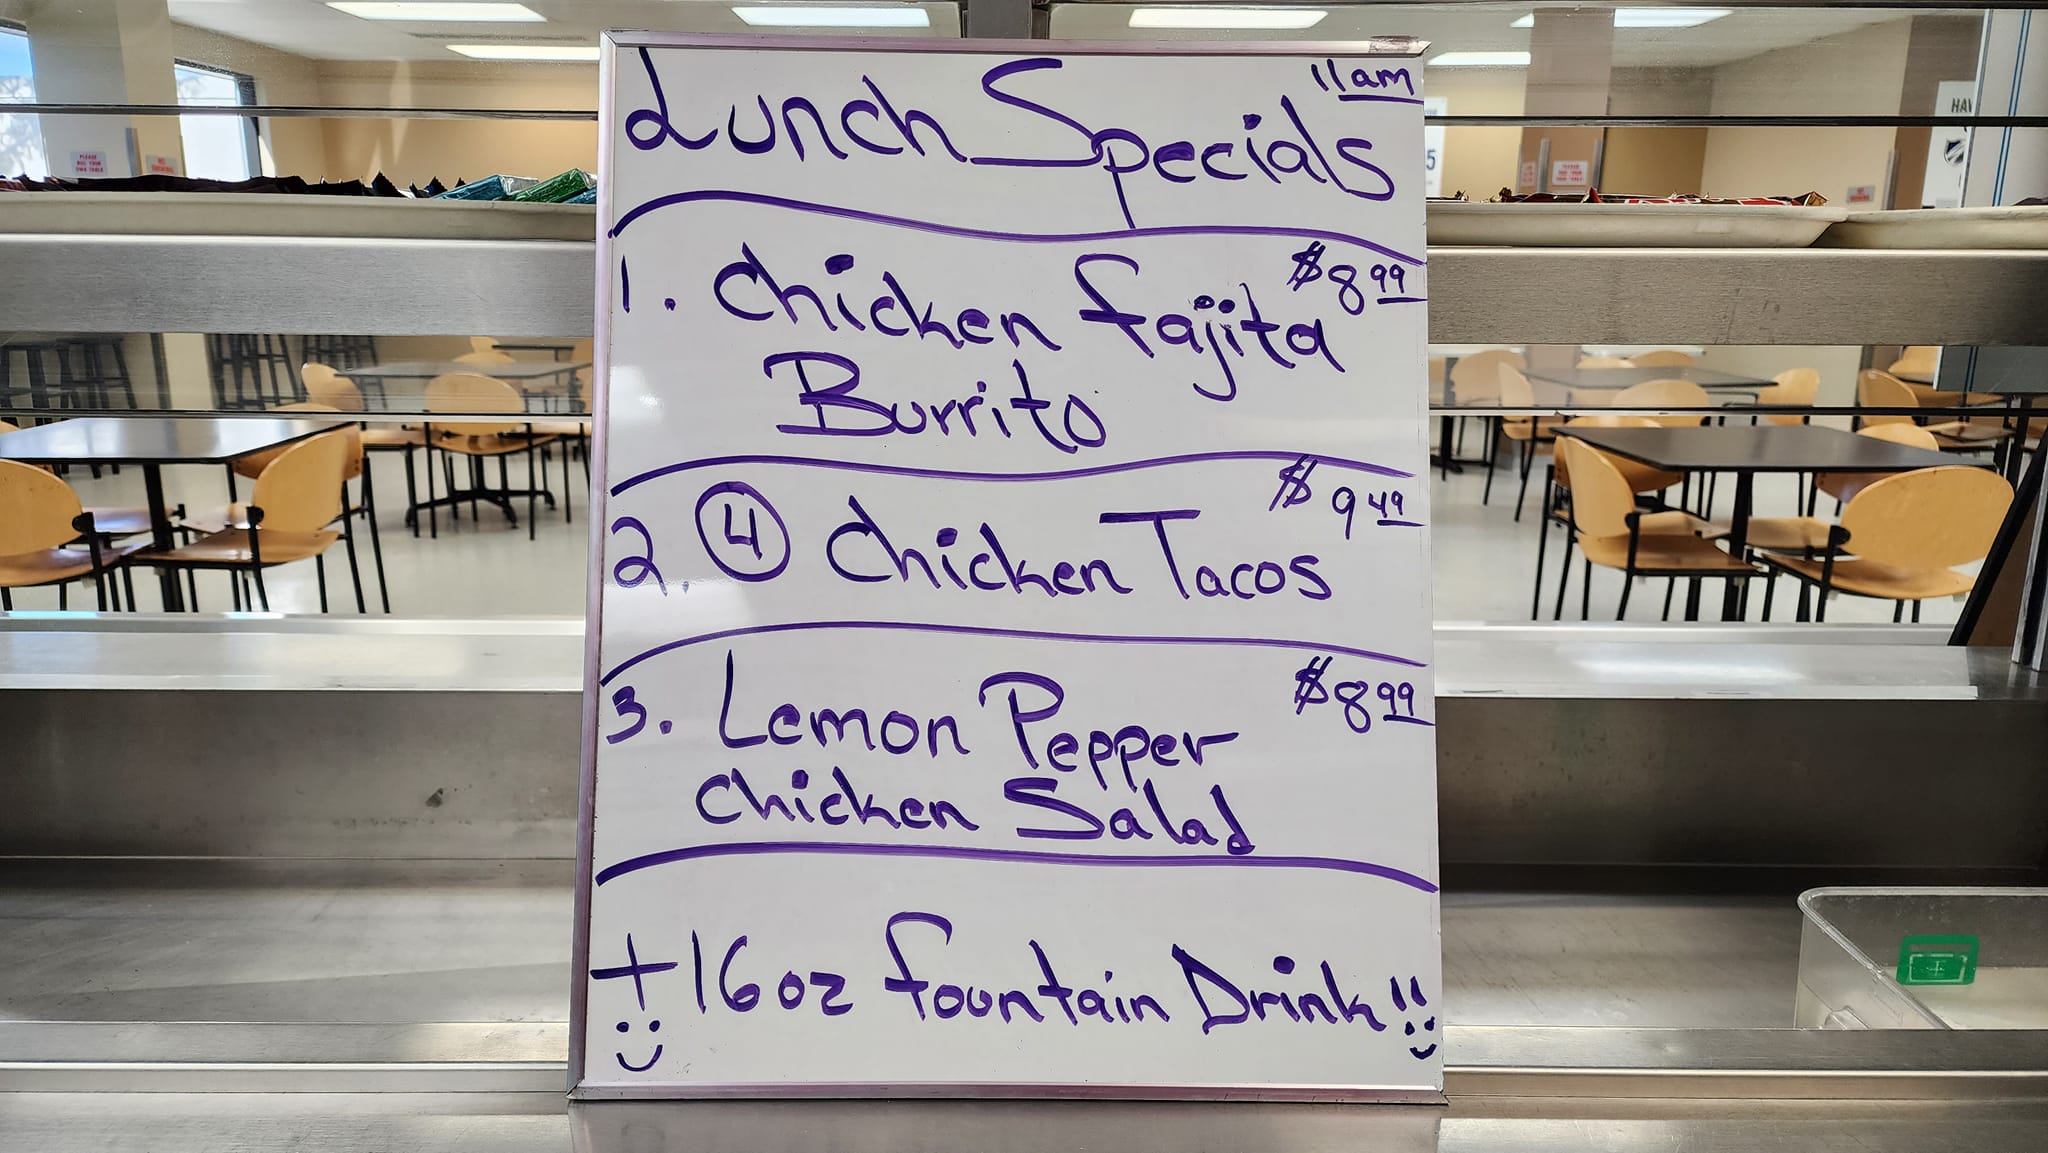 Lunch Specials 11am
1. Chicken Fajita $8.99
Burrito
2. ④ Chicken Tacos $9.49
3. Lemon Pepper $8.99
Chicken Salad
+ 16oz Fountain Drink!!
PLEASE
BUS YOUR
OWN TABLE
NO
SMOKING
HAV
5